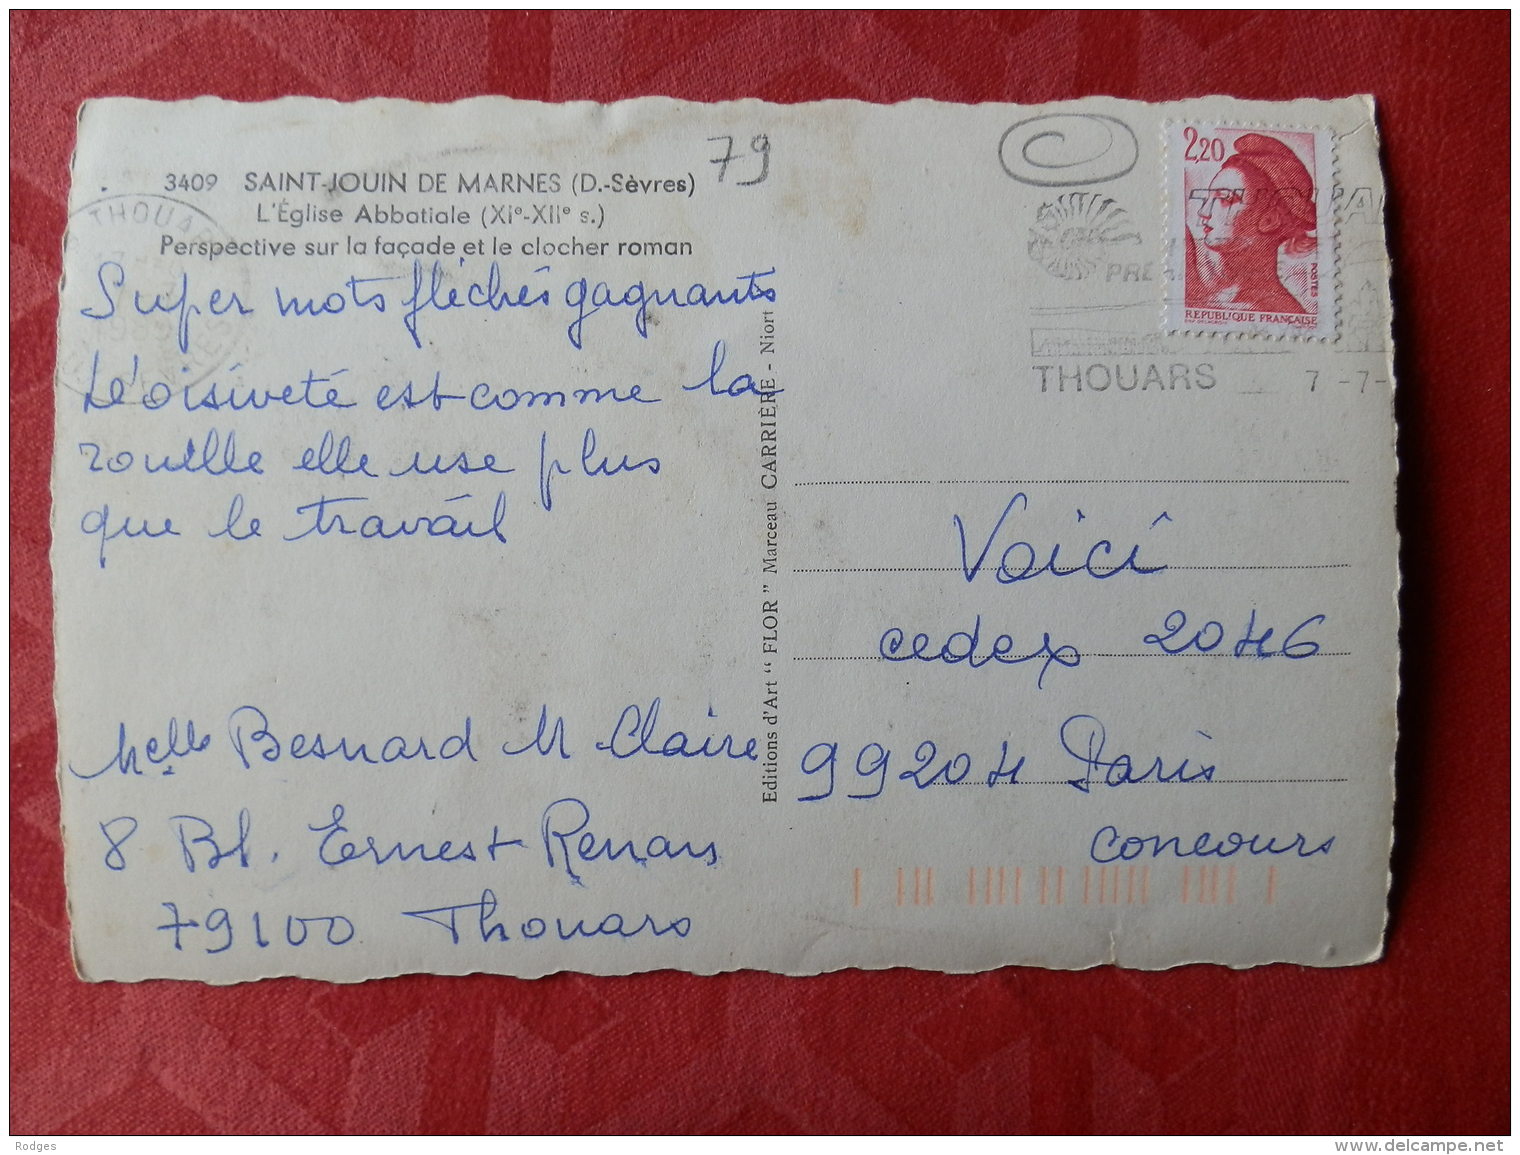 79
3409 SAINT-JOUIN DE MARNES (D.-Sèvres)
L'Église Abbatiale (XIe-XIIe s.)
Perspective sur la façade et le clocher roman
Super mots fléchés gagnants
L'oisiveté est comme la
rouille elle use plus
que le travail
Melle Besnard M Claire
8 Bl. Ernest Renan
79100 Thouars
Editions d'Art “ FLOR ” Marceau CARRIÈRE - Niort
2,20
POSTES
REPUBLIQUE FRANÇAISE
THOUARS 7 -7-
Voici
cedex 2046
99204 Paris
concours
THOUARS
Rodges
www.delcampe.net